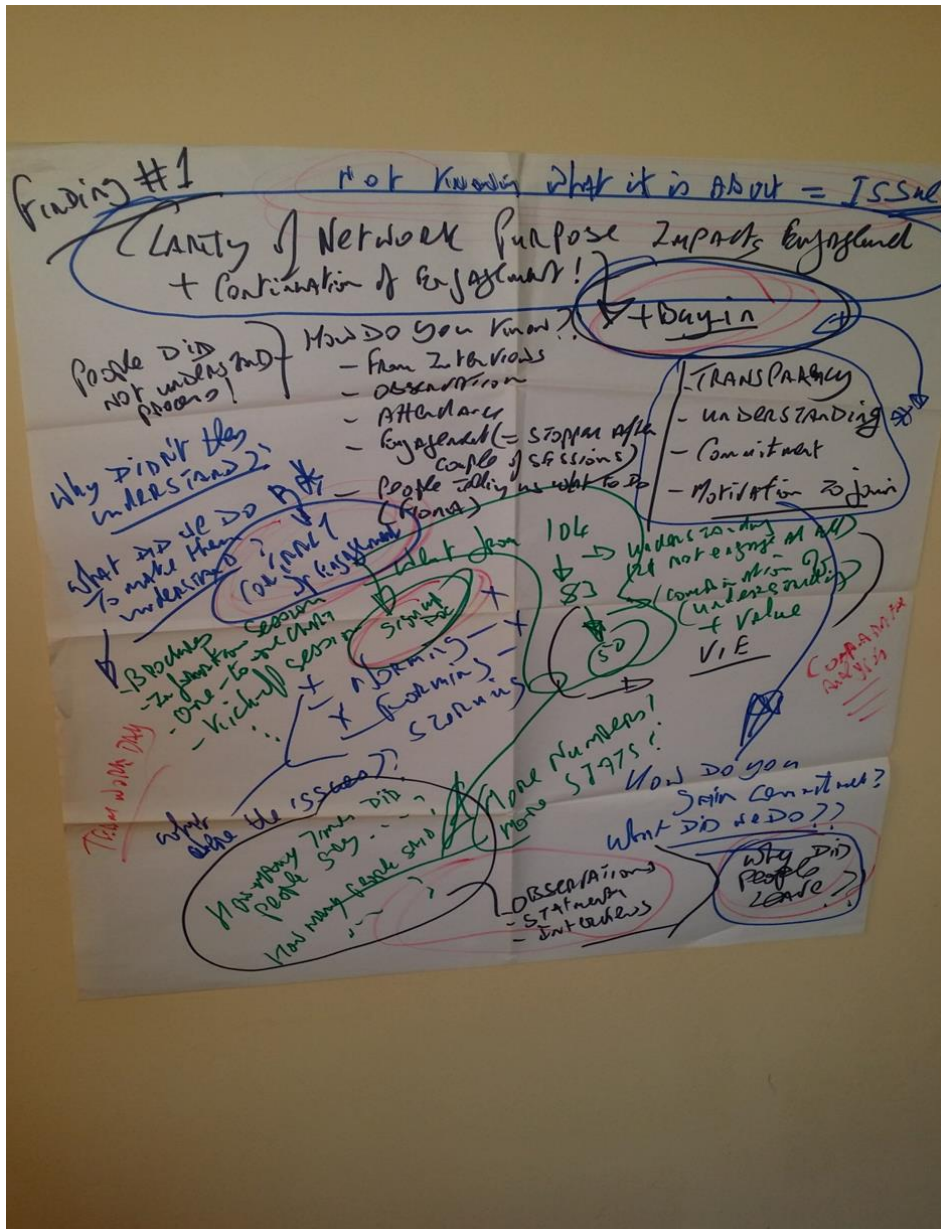 Finding #1
Not knowing what it is about = ISSUE
Clarity of Network Purpose Impacts Engagement
+ Continuation of Engagement!
+ Buy-in
People DID
not understand
process!
How Do you know??
- From Interviews
- Observation
- Attendance
- Engagement (= Stopped After
couple of sessions)
- People telling us what to do
(Fiona)
- Transparency
- Understanding
- Commitment
- Motivation to join
Why Didn't they
understand?
What DID we DO
to make them
understand?
of engagement
- Brochures
- Information session
- one-to-one chats
- Kickoff session
...
Signup
Doc
went from
104
83
50
understanding
(not engage at all)
continuation
(understanding)
+ Value
V.I.E
Comparative
Analysis
+ Norming - +
+ Forming -
Storming
Team work Day
What
were the issues??
How many times DID
people say . . . . ?
How many people said
. . . ?
More Numbers!
More STATS!
- Observations
- Statments
- Interviews
How Do you
gain commitment?
What DID we Do??
Why DID
people
leave??